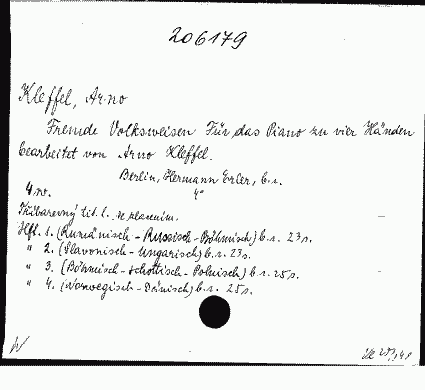 206179
Kleffel, Arno
Fremde Volksweisen Für das Piano zu vier Händen
bearbeitet von Arno Kleffel.
Berlin, Hermann Erler, b.r.
4 nr. 4°
Tříbarevný tit. l.
Hft. 1. (Rumänisch - Russisch - Böhmisch) b.r. 23 s.
" 2. (Slavonisch - Ungarisch) b.r. 23 s.
" 3. (Böhmisch - Schottisch - Polnisch) b.r. 25 s.
" 4. (Norwegisch - Dänisch) b.r. 25 s.